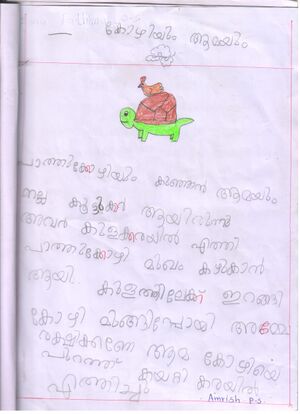 കോഴിയും ആമയും
പാത്തുക്കോഴിയും കുഞ്ഞൻ ആമയും
നല്ല കൂട്ടുകാർ ആയിരുന്നു
അവർ കുളക്കരയിൽ എത്തി
പാത്തുക്കോഴി മുഖം കഴുകാൻ
ആയി..
കുളത്തിലേക്ക് ഇറങ്ങി
കോഴി മുങ്ങിപ്പോയി അമ്മേ
രക്ഷിക്കണേ ആമ കോഴിയെ
പുറത്ത് കയറ്റി കരയിൽ
എത്തിച്ചു
Amrish P.S.